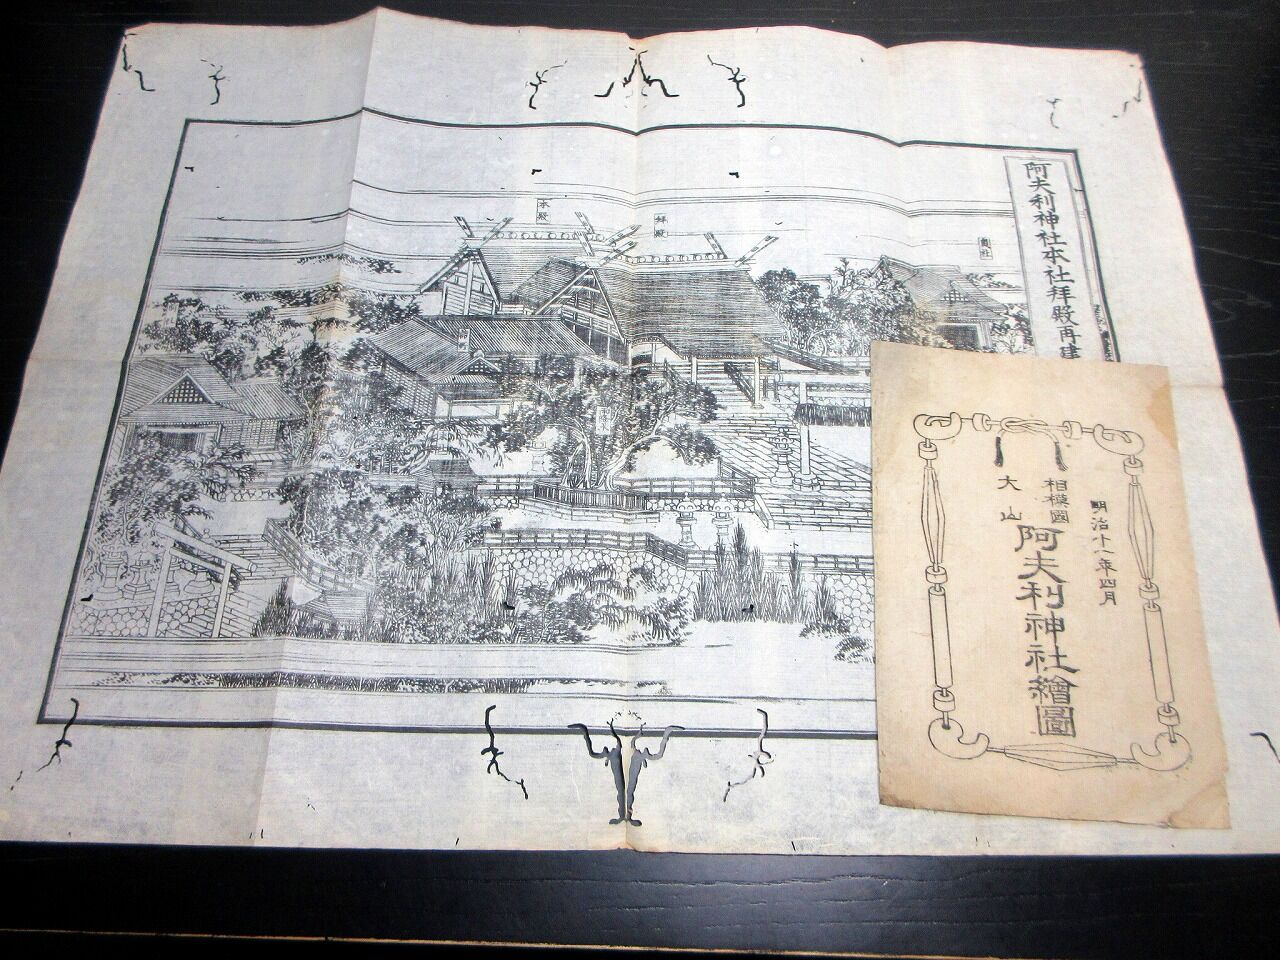 阿夫利神社本社拜殿再建
奥社
拜殿
本殿
明治十八年四月
相模國
大山
阿夫利神社繪圖